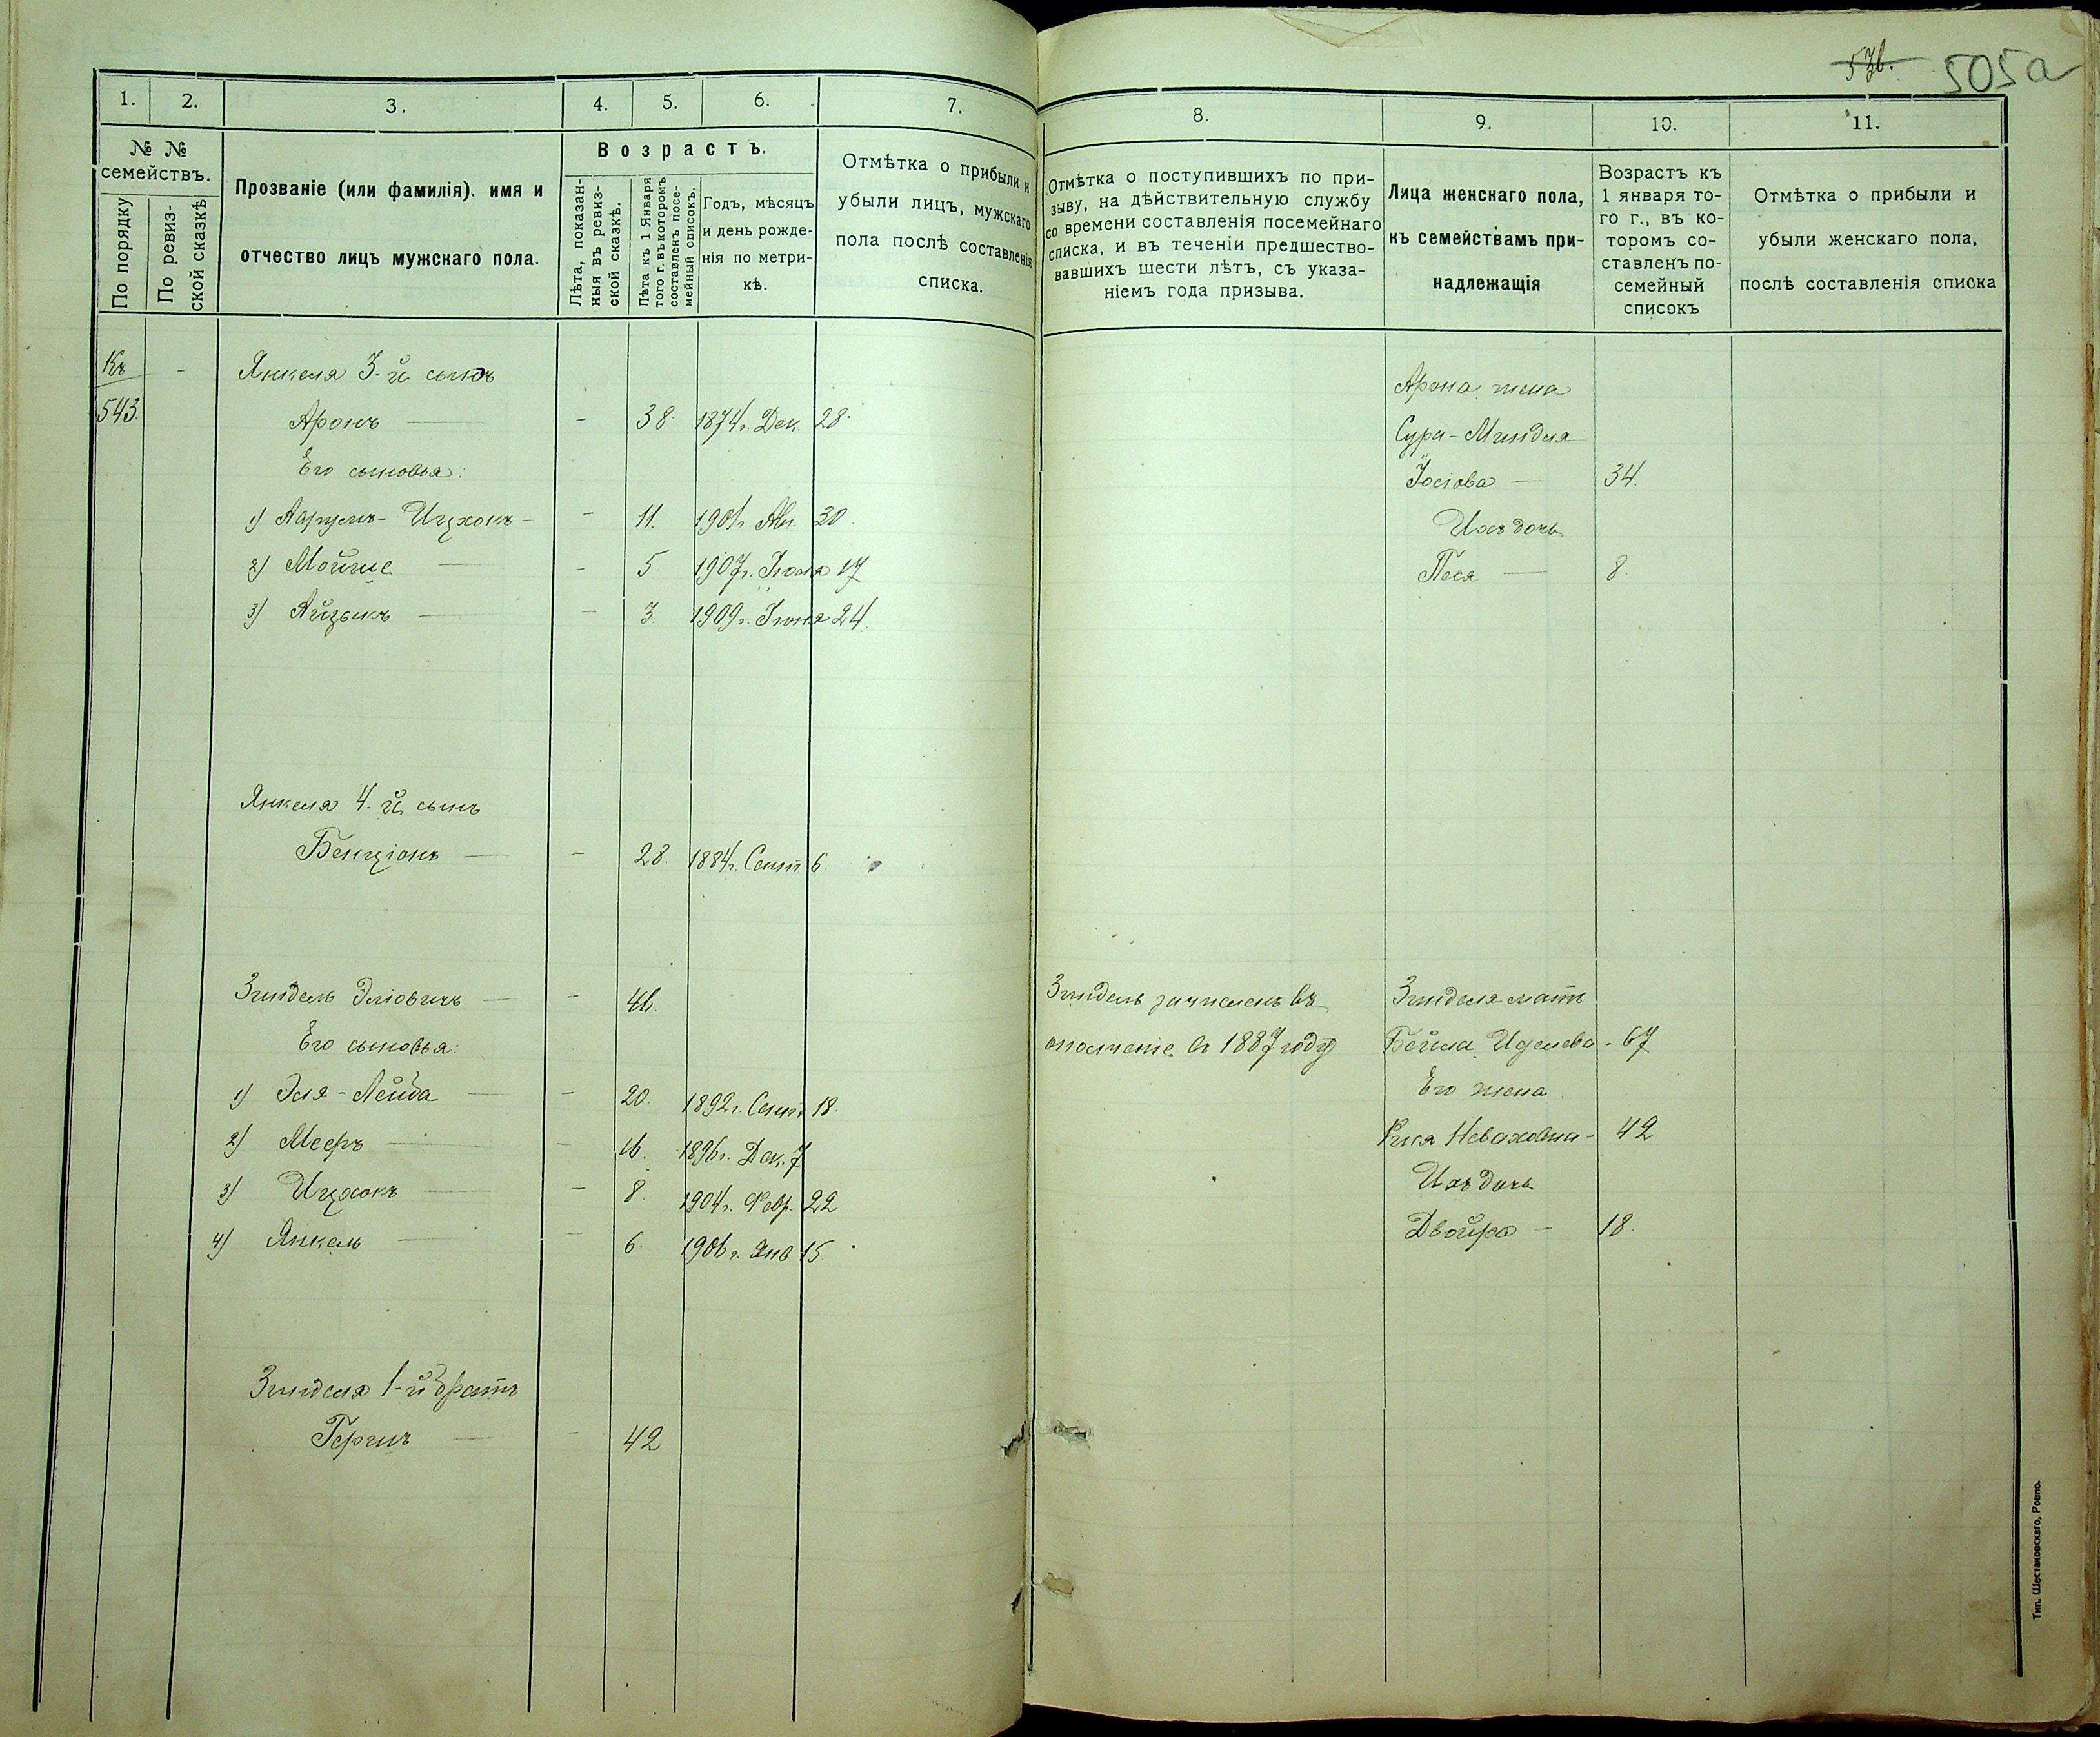 536.
505а
1. 2. 3. 4. 5. 6. 7.
№ №
семействъ.
По порядку
По ревиз-
ской сказкѣ
Прозваніе (или фамилія). имя и
отчество лицъ мужскаго пола.
Возрастъ.
Лѣта, показан-
ныя въ ревиз-
ской сказкѣ.
Лѣта къ 1 Января
того г. въ которомъ
составленъ посе-
мейный списокъ.
Годъ, мѣсяцъ
и день рожде-
нія по метри-
кѣ.
Отмѣтка о прибыли и
убыли лицъ, мужскаго
пола послѣ составленія
списка.
Къ - Янкеля 3-й сынъ
543. Аронъ — - 38. 1874г. Дек. 28.
Его сыновья:
1) Ицхокъ - - 11. 1901г. Авг. 30.
2) Мойше — - 5 1907г. Іюля 17
3) Айзикъ — - 3. 1909г. Іюня 24.
Янкеля 4-й сынъ
Бенціонъ — - 28. 1884г. Сент 6.
Зиндель Эліовичъ — - 46.
Его сыновья:
1) Эля-Лейба — - 20. 1892г. Сент 18.
2) Мееръ — - 16. 1896г. Дек. 7
3) Ицхокъ — - 8. 1904г. Февр. 22
4) Янкель — - 6. 1906г. Янв 15.
Зинделя 1-й братъ
Гершъ — - 42
8. 9. 10. 11.
Отмѣтка о поступившихъ по при-
зыву, на дѣйствительную службу
со времени составленія посемейнаго
списка, и въ теченіи предшество-
вавшихъ шести лѣтъ, съ указа-
ніемъ года призыва.
Лица женскаго пола,
къ семействамъ при-
надлежащія
Возрастъ къ
1 января то-
го г., въ ко-
торомъ со-
ставленъ по-
семейный
списокъ
Отмѣтка о прибыли и
убыли женскаго пола,
послѣ составленія списка
Арона жена
Сура-Миндля
Іосіова — 34.
Ихъ дочь
Песя — 8.
Зиндель зачисленъ въ
ополченіе въ 1887 году
Зинделя мать
Бейла Иделева - 67
Его жена
Рися Неваховна - 42
Ихъ дочь
Двойра — 18.
Тип. Шестаковскаго, Ровно.